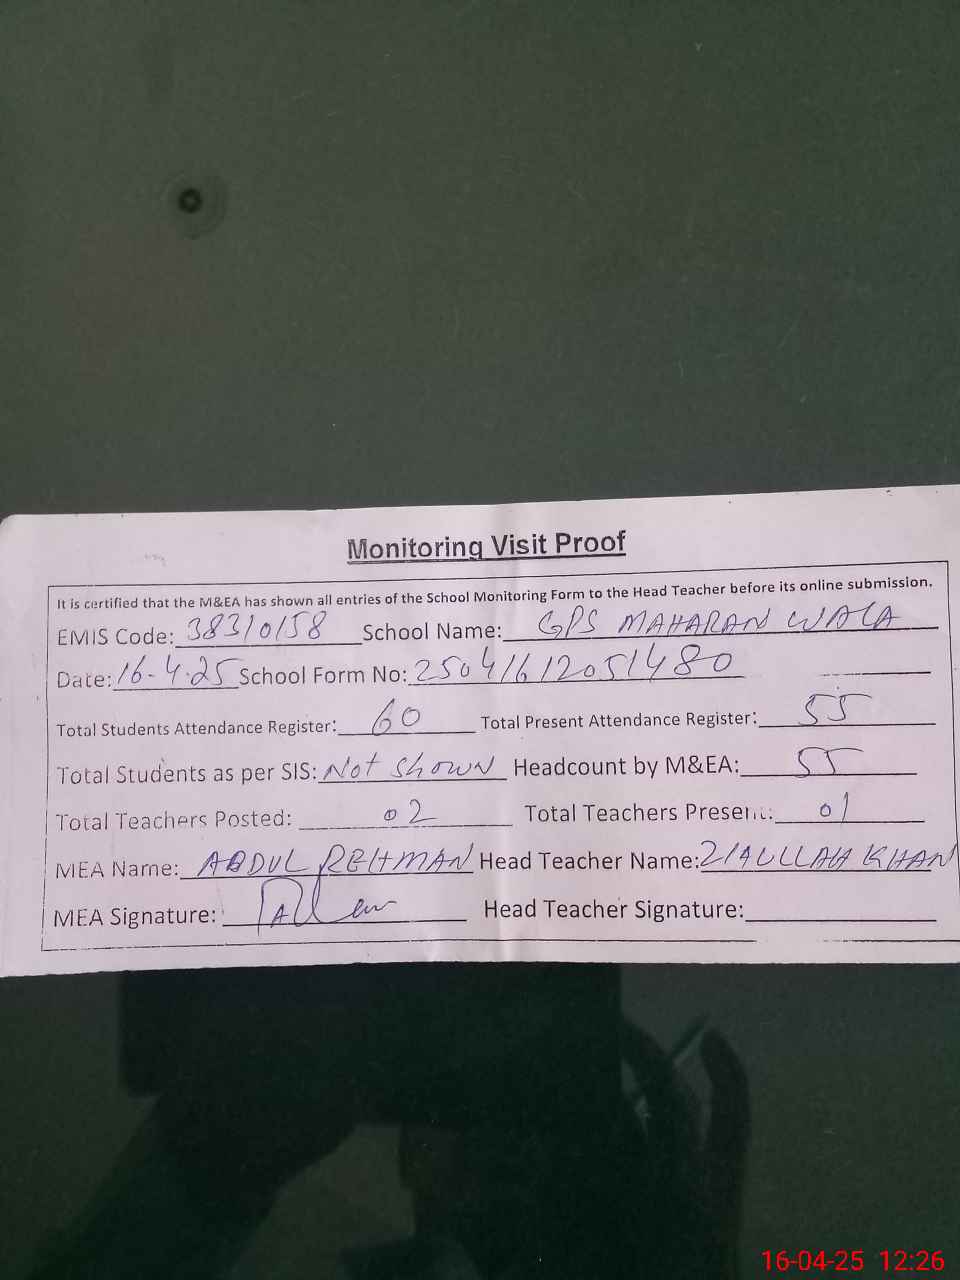 Monitoring Visit Proof
It is certified that the M&EA has shown all entries of the School Monitoring Form to the Head Teacher before its online submission.
EMIS Code: 38310158 School Name: GPS MAHARAN WALA
Date: 16-4-25 School Form No: 25041612051480
Total Students Attendance Register: 60 Total Present Attendance Register: 55
Total Students as per SIS: Not shown Headcount by M&EA: 55
Total Teachers Posted: 02 Total Teachers Present: 01
MEA Name: ABDUL REHMAN Head Teacher Name: ZIAULLAH KHAN
MEA Signature: Head Teacher Signature:
16-04-25 12:26